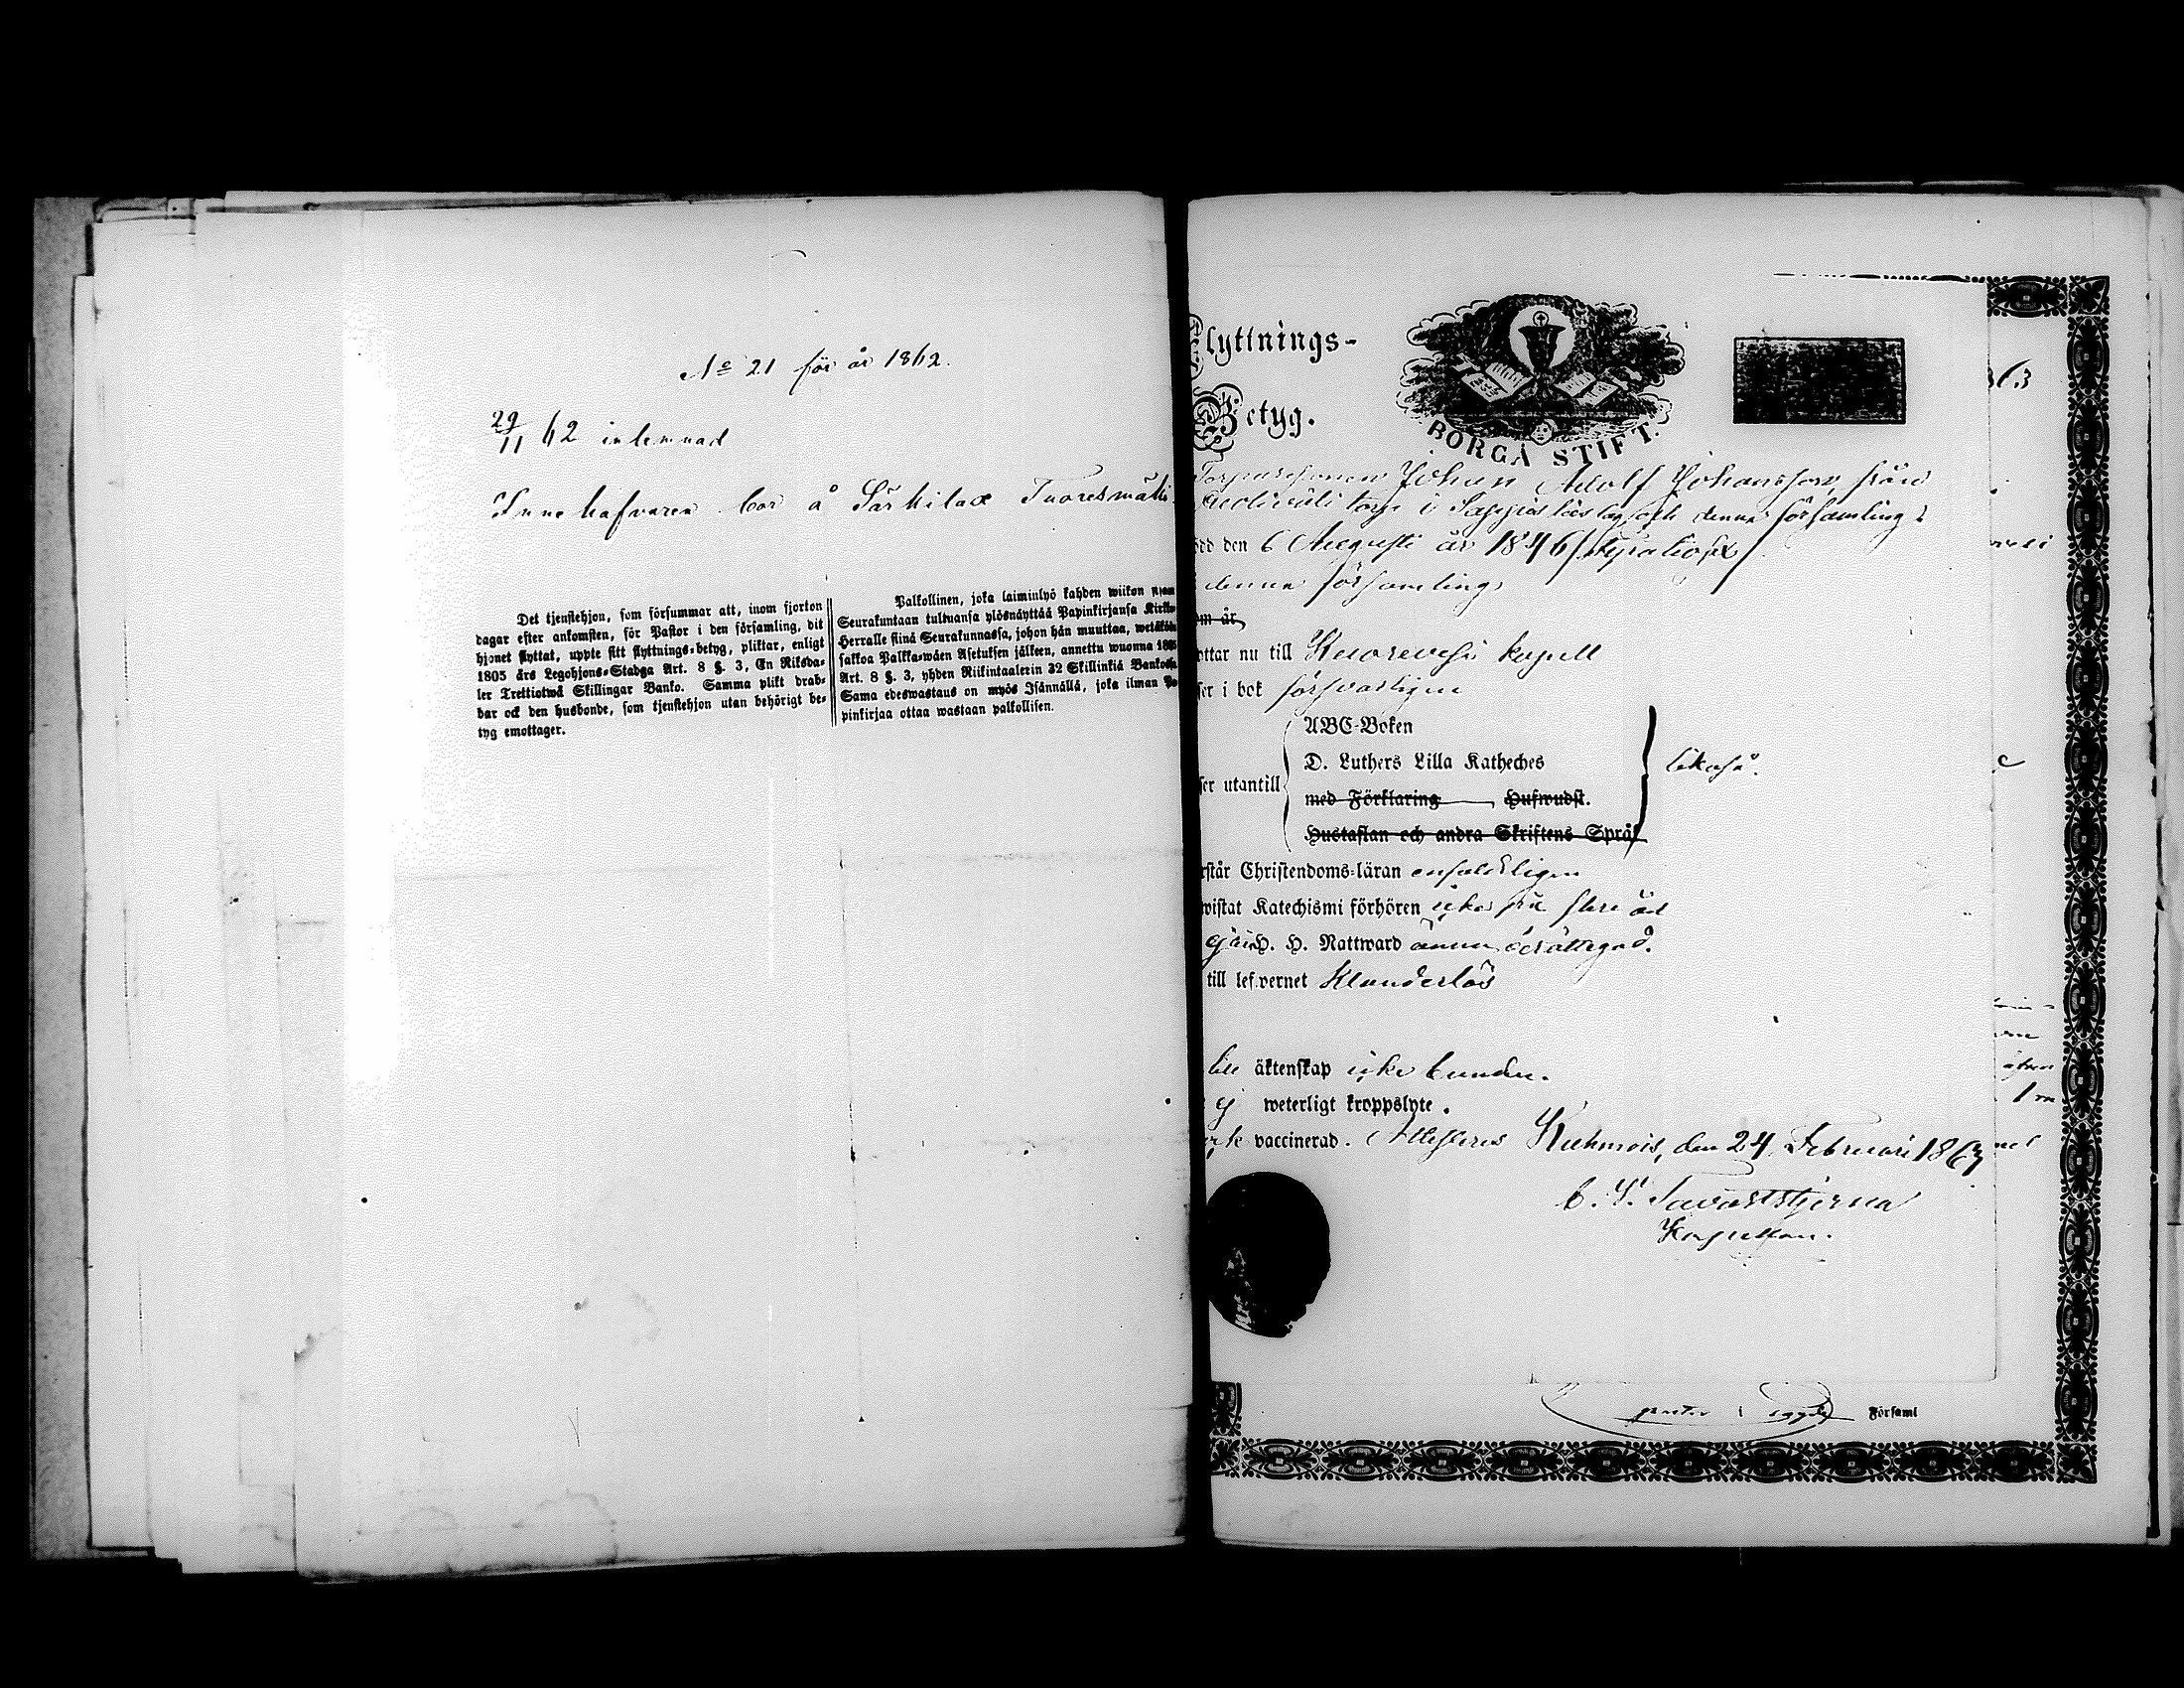 No 21 för år 1862.
29/11 62 inlemnad
Innehafvaren bor å Särkilax Tuoresmäki.
Det tjenstehjon, som försummar att, inom fjorton
dagar efter ankomsten, för Pastor i den församling, dit
hjonet flyttat, uppte sitt flyttnings-betyg, pliktar, enligt
1805 års Legohjons-Stadga Art. 8 §. 3, En Riksda-
ler Trettiotwå Skillingar Banko. Samma plikt drab-
bar ock den husbonde, som tjenstehjon utan behörigt be-
tyg emottager.
Palkollinen, joka laiminlyö kahden wiikon
Seurakuntaan tultuansa ylösnäyttää Papinkirjansa Kirkko-
Herralle siinä Seurakunnassa, johon hän muuttaa, wetäköön
sakkoa Palkka-wäen Asetuksen jälkeen, annettu wuonna 1805
Art. 8 §. 3, yhden Riikintaalerin 32 Skillinkiä Bankossa
Sama edeswastaus on myös Isännällä, joka ilman Pa-
pinkirjaa ottaa wastaan palkollisen.
Flyttnings-
Betyg.
BORGÅ STIFT.
863
Torparesonen Johan Adolf Johansson, från
torp i Sappis läslag och denna församling;
ödd den 6 Augusti år 1846
denna församling
om år
ottar nu till Kuorevesi kapell
ser i bok försvarligen
ser utantill
ABC-Boken
D. Luthers Lilla Katheches
med Förklaring Hufwudst.
Hustaflan och andra Skriftens Språk
likaså.
rstår Christendoms-läran enfaldeligen
wistat Katechismi förhören icke på flere år
ej är H. H. Nattward ännu berättigad.
till lefvernet Klanderlös
till äktenskap icke bunden.
ej weterligt kroppslyte.
vaccinerad. Attesteras Kuhmois, den 24 Februari 1863
Tavaststjerna
Kapellan.
pastor i Församl